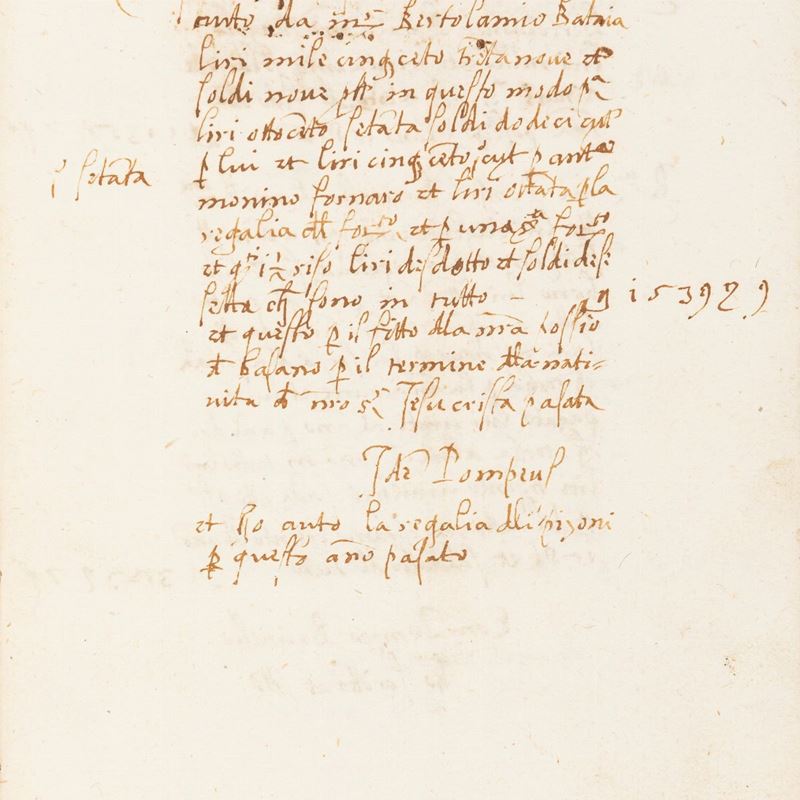 auto da mr Bertolamio Bataia
liri mile cinqceto tretanove et
soldi nove plt in questo modo pa
liri ottoceto setata soldi dodeci cut
p lui et liri cinqceto cut p anto
monino fornaro et liri ottata p la
setata
regalia dl for.to et p una for.to
et qti riso liri desdotto et soldi dese
setta ch sono in tutto - 1539 ł 9
et questo p il fitto dla nra hossio
d basano p il termine dla nati=
vita d nro sr Jesu crista pasata
Ide Pompeus
et ho auto la regalia dli pizoni
p questo ano pasato